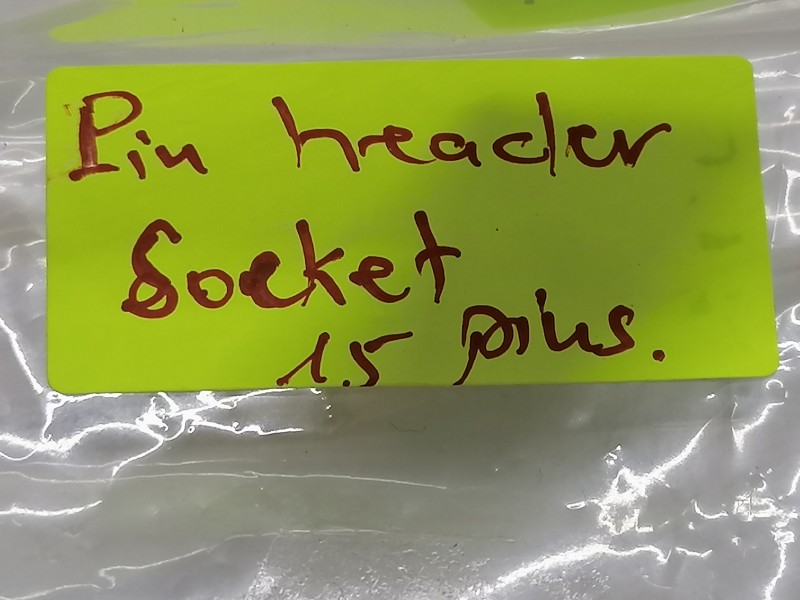 Pin header
Socket
15 pins.